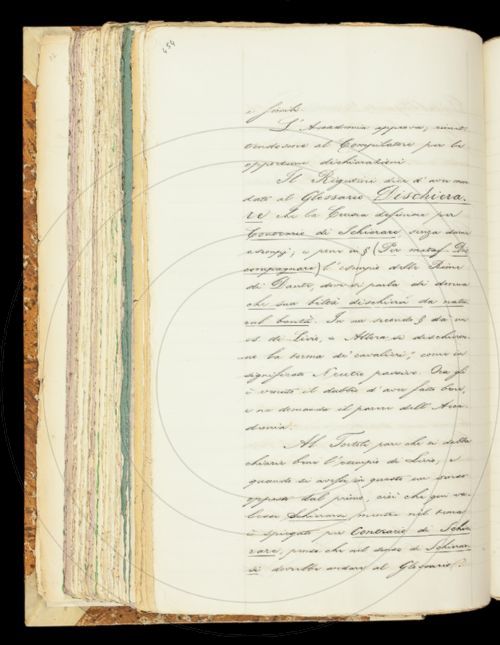 454
e simili.
L'Accademia approva, rimet-
tendosene al Compilatore per le
opportune dichiarazioni.
Il Rigutini dice d'aver man
dato al Glossario Dischiera-
re che la Crusca definisce per
Contrario di Schierare senza darne
esempj; e pone in § (Per metaf. Dis
compagnare) l'esempio delle Rime
di Dante, dove si parla di donna
che sua biltà dischiera da natu
ral bontà. In un secondo § dà un
es. di Livio, e Allora si dischiera-
no la torma de' cavalieri; come in
significato Neutro passivo. Ora gli
è venuto il dubbio d'aver fatto bene,
e ne domanda il parere dell'Acca-
demia.
Al Tortoli pare che si debba
chiarir bene l'esempio di Livio, e
quando si avesse in questo un senso
opposto dal primo, cioè che qui va-
lesse Schierare mentre nel tema
è spiegato per Contrario di Schie
rare, pensa che nel senso di Schierar
si dovrebbe andare al Glossario.